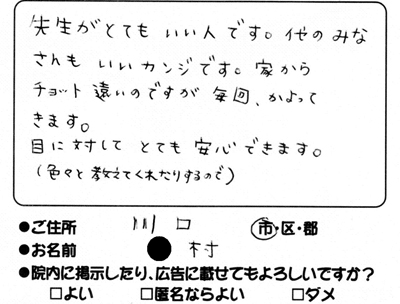 先生がとても いい人です。他のみな
さんも いいカンジです。家から
チョット 遠いのですが 毎回、かよって
きます。
目に対して とても 安心できます。
(色々と教えてくれたりするので)
●ご住所 川口 市・区・郡
●お名前 ●村
●院内に掲示したり、広告に載せてもよろしいですか?
□よい □匿名ならよい □ダメ